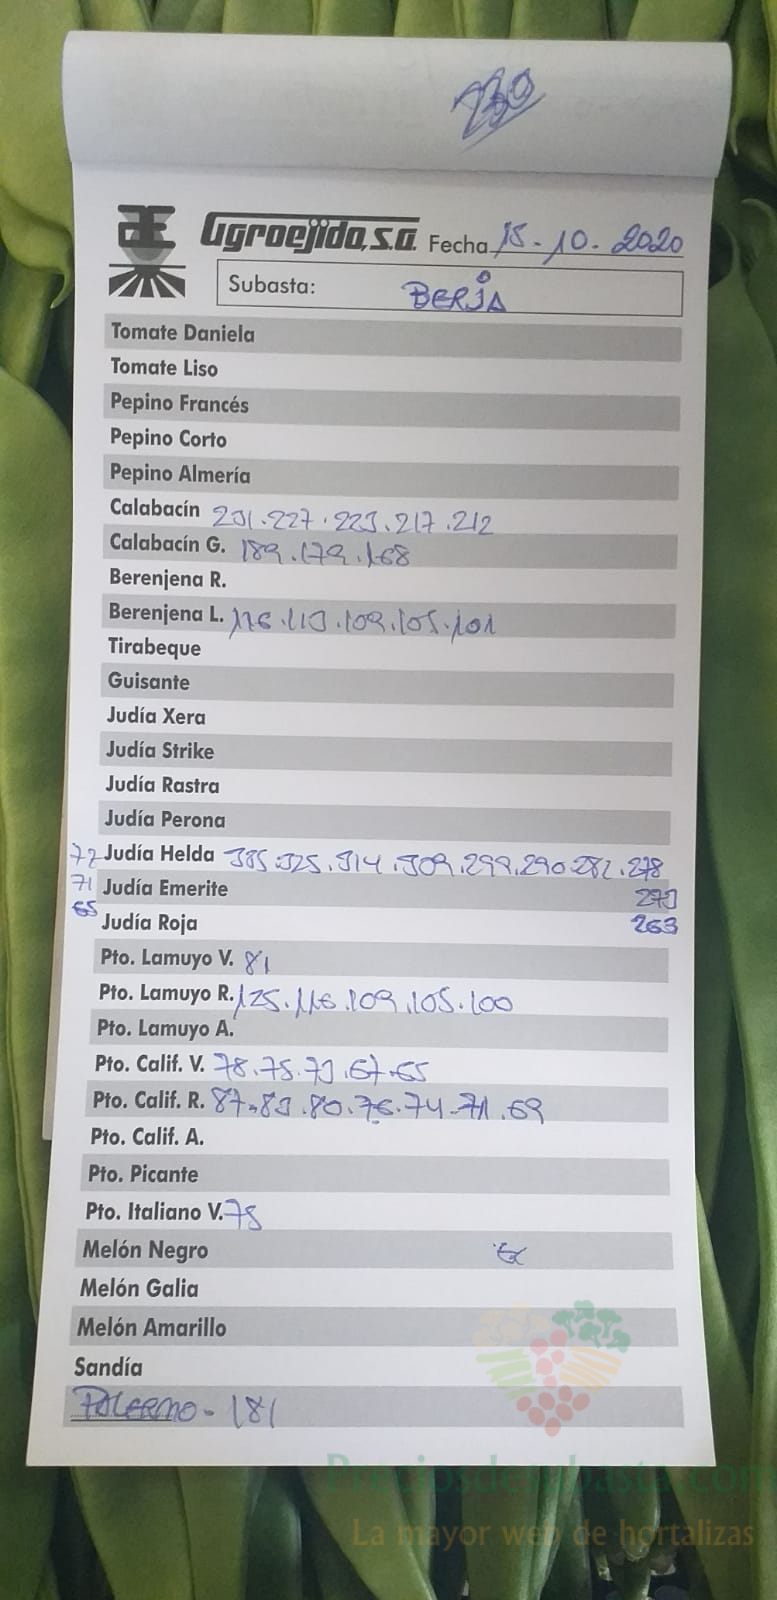 230
Agroejido, S.A. Fecha 15-10-2020
Subasta: BERJA
Tomate Daniela
Tomate Liso
Pepino Francés
Pepino Corto
Pepino Almería
Calabacín 231.227.223.217.212
Calabacín G. 189.179.168
Berenjena R.
Berenjena L. 116.113.109.105.101
Tirabeque
Guisante
Judía Xera
Judía Strike
Judía Rastra
Judía Perona
72 Judía Helda 335.325.314.309.299.290.282.278
71 Judía Emerite 273
65 Judía Roja 263
Pto. Lamuyo V. 81
Pto. Lamuyo R. 125.116.109.105.100
Pto. Lamuyo A.
Pto. Calif. V. 78.75.73.67.65
Pto. Calif. R. 87.83.80.76.74.71.69
Pto. Calif. A.
Pto. Picante
Pto. Italiano V. 75
Melón Negro
Melón Galia
Melón Amarillo
Sandía
PALERMO - 181
Preciosdesubasta.com
La mayor web de hortalizas